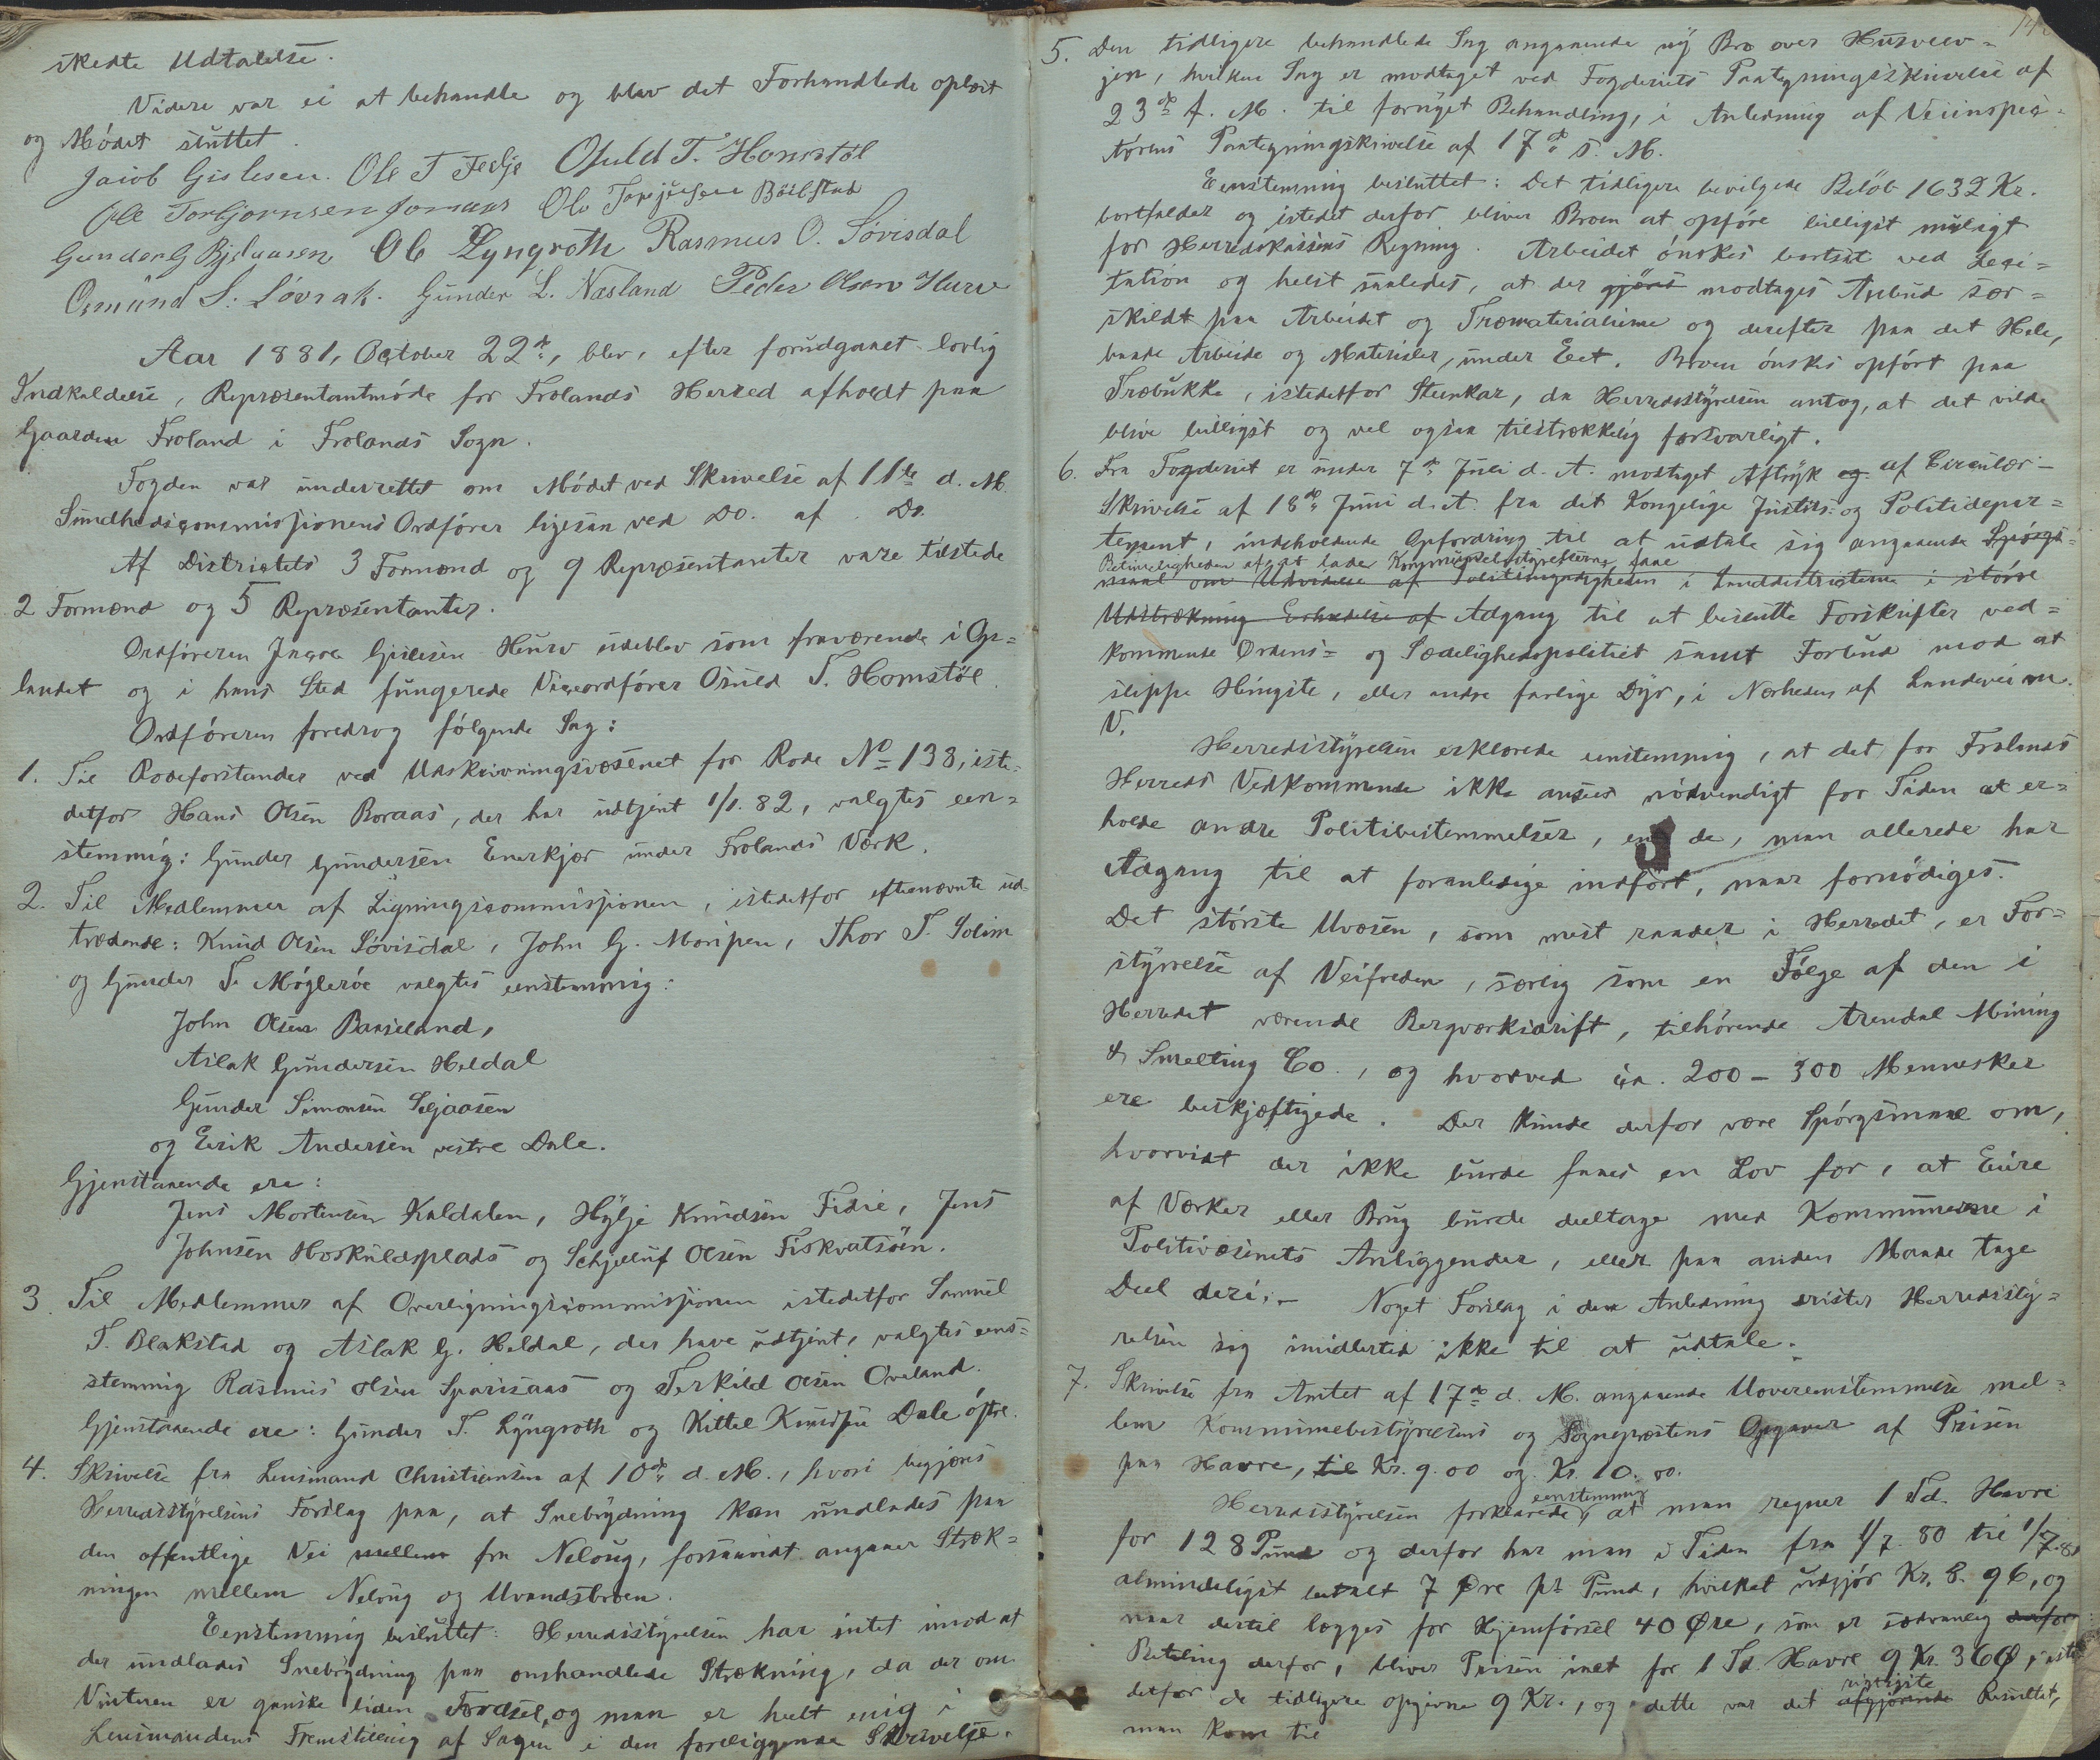 skedte Udtalelse.
Videre var ei at behandle og blev det Forhandlede oplæst
og Mödet sluttet.
Jacob Gislesen. Ole T Feslje Osuld T. Homstøl
Ole Torbjørnsen Jomaas Ole Terjesen Bøilestad
Gunder G Bjelaasen Ole Lyngroth Rasmus O. Løvisdal
Osmund S. Løvrak. Gunder L. Næsland Peder Olsen Hurv
Aar 1881, October 22de, blev, efter forudgaaet lovlig
Indkaldelse, Repræsentantmöde for Frolands Herred afholdt paa
Gaarden Froland i Frolands Sogn.
Fogden var underrettet om Mödet ved Skrivelse af 11te d. M.
Sundhedscommissionens Ordförer ligesaa ved Do. af Do.
Af Districtets 3 Formænd og 9 Repræsentanter vare tilstede
2 Formænd og 5 Repræsentanter.
Ordföreren Jacob Gislesen Hurv udeblev som fraværende i Op=
landet og i hans Sted fungerede Viceordförer Osuld T. Homstöl.
Ordföreren foredrog fölgende Sag:
1. Til Rodeforstander ved Udskrivningsvæsenet for Rode No 138, iste=
detfor Hans Olsen Boraas, der har udtjent 1/1. 82, valgtes een=
stemmig: Gunder Gundersen Enerkjær under Frolands Værk.
2. Til Medlemmer af Ligningscommissionen, istedetfor eftenævnte ud=
trædende: Knud Olsen Lövisdal, John G. Moripen, Thor T. Solim
og Gunder T. Mögleröe valgtes eenstemmig:
John Olsen Baaseland,
Aslak Gundersen Heldal
Gunder Simonsen Seljaasen
og Eerik Andersen vestre Dale.
Gjenstaaende ere:
Jens Mortensen Kaldalen, Hylje Knudsen Fidie, Jens
Johnsen Hoskuldsplads og Schjelluf Olsen Fiskvatsöen.
3. Til Medlemmer af Overligningscommissionen istedetfor Samuel
T. Blakstad og Aslak G. Heldal, der have udtjent, valgtes eens=
stemmig Rasmus Olsen Sparsaas og Terkild Olsen Oveland.
Gjenstaaende ere: Gunder T. Lyngroth og Kittel Knudsen Dale östre.
4. Skrivelse fra Lensmand Christiansen af 10de d. M., hvori begjæres
Herredsstyrelsens Forslag paa, at Snebrydning kan undlades paa
den offentlige Vei mellem fra Neloug, forsaavidt angaaer Stræk=
ningen mellem Neloug og Uvandsbroen.
Eenstemmig besluttet: Herredsstyrelsen har intet imod at
der undlades Snebrydning paa omhandlede Strækning, da der om
Vinteren er ganske liden Færdsel, og man er heelt enig i
Lensmandens Fremstilling af Sagen i den foreliggende Skrivelse.
5. Den tidligere behandlede Sag angaaende ny Bro over Husvev=
jen, hvilken Sag er modtaget ved Fogderiets Paategningsskrivelse af
23de f. M. til fornyet Behandling, i Anledning af Veiinspec=
törens Paategningskrivelse af 17de s. M.
Eenstemmig besluttet: Det tidligere bevilgede Belöb 1632 Kr.
bortfalder og istedet derfor bliver Broen at opföre billigst muligt
for Herredskassens Regning. Arbeidet önskes bortsat ved Leci=
tation og helst saaledes, at der gjöres modtages Anbud sær=
skildt paa Arbeidet og Træmaterialierne og derefter paa det Hele,
baade Arbeide og Materialer, under Eet. Broen önskes opfört paa
Træbukke, istedetfor Steenkar, da Herredsstyrelsen antog, at det vilde
blive billigst og vel ogsaa tilstrækkelig forsvarligt.
6. Fra Fogderiet er under 7de Juli d. A. modtaget Aftryk og af Circulær=
Skrivelse af 18de Juni d. A. fra det Kongelige Justits- og Politidepar=
tement, indeholdende Opfordring til at udtale sig angaaende Spörgs=
Betimeligheden af at lade Kommunebestyrelserne faae
maal om Udvidelse af Politimyndigheden i Landdistricterne i större
Udstrækning Erholdelse af Adgang til at beslutte Forskrifter ved=
kommende Ordens= og Sædelighedspolitiet samt Forbud mod at
slippe Hingste, eller andre farlige Dyr, i Nærheden af Landeveien
V.
Herredsstyrelsen erklærede eenstemmig, at det for Frolands
Herreds Vedkommende ikke ansees nödvendigt for Tiden at er=
holde andre Politibestemmelser, end de, man allerede har
Adgang til at foranledige indfört, naar fornödiges.
Det störste Uvæsen, som mest raader i Herredet, er For=
styrrelse af Veifreden, særlig som en Fölge af den i
Herredet værende Bergværksdrift, tilhörende Arendal Mining
& Smelting Co., og hvorved ca. 200 - 300 Mennesker
ere beskjæftigede. Der kunde derfor være Spörgsmaal om,
hvorvidt der ikke burde faaes en Lov for, at Eiere
af Værker eller Brug burde deeltage med Kommunerne i
Politivæsenets Anliggender, eller paa anden Maade tage
Deel deri. - Noget Forslag i den Anledning drister Herredssty=
relsen sig imidlertid ikke til at udtale.
7. Skrivelse fra Amtet af 17de d. M. angaaende Uovereenstemmelse mel=
lem Kommunebestyrelsens og Sogneprestens Opgaver af Prisen
paa Havre, til Kr. 9.00 og Kr. 10.00.
eenstemmig
Herredsstyrelsen forklarede, at man regner 1 Td. Havre
for 128 Pund og derfor har man i Tiden fra 1/7. 80 til 1/7. 81
almindeligst betalt 7 Øre pr Pund, hvilket udgjör Kr. 8. 96, og
naar dertil lægges for Hjemförsel 40 Øre, som er sædvanlig derfor
Betaling derfor, bliver Prisen inet for 1 Td. Havre 9 Kr. 36 Ø, iste
detfor de tidligere opgivne 9 Kr., og dette var det afgjörende Resultat,
rigtigste
man kom til